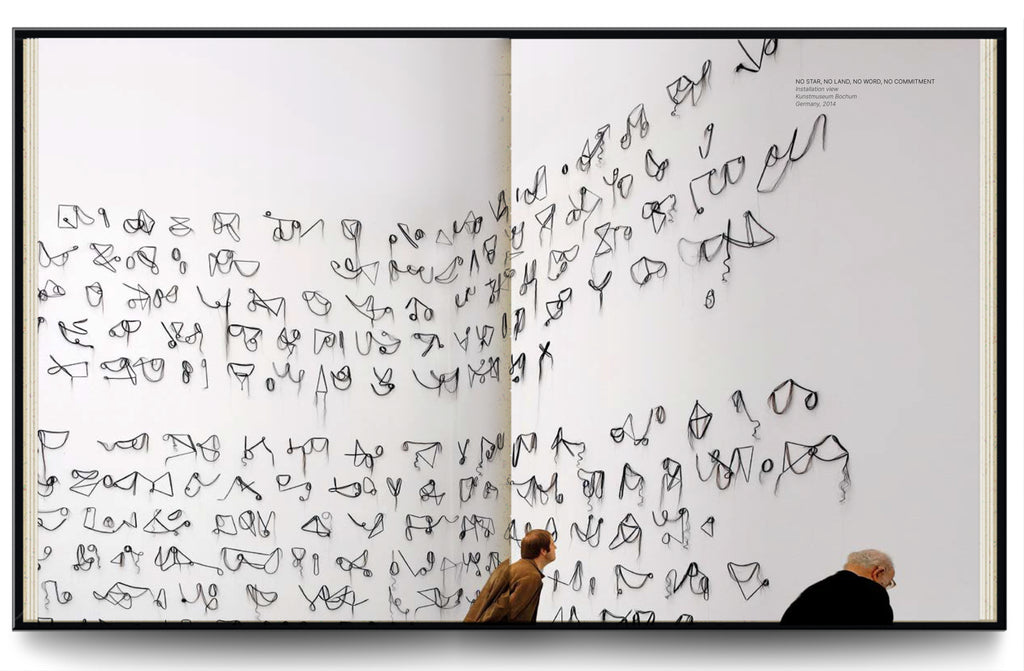 NO STAR, NO LAND, NO WORD, NO COMMITMENT
Installation view
Kunstmuseum Bochum
Germany, 2014